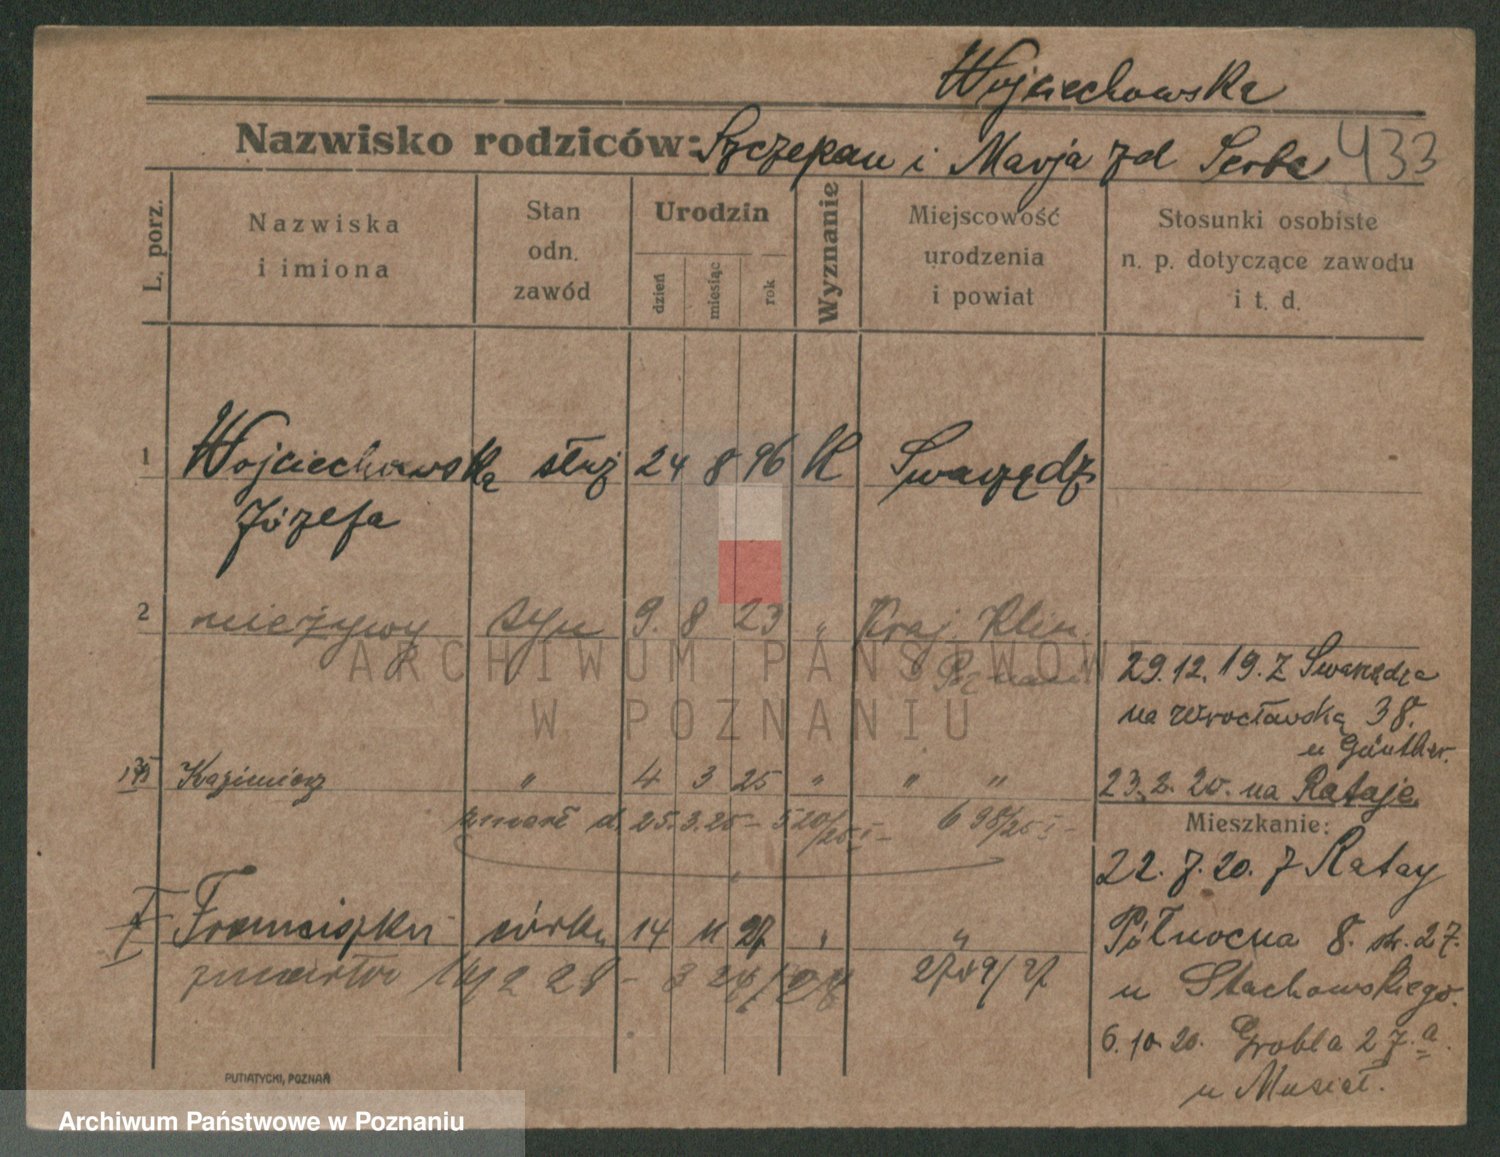 Wojciechowska
Nazwisko rodziców: Szczepan i Marja zd Serba 433
L. porz.
Nazwiska
i imiona
Stan
odn.
zawód
Urodzin
dzień
miesiąc
rok
Wyznanie
Miejscowość
urodzenia
i powiat
Stosunki osobiste
n. p. dotyczące zawodu
i t. d.
1 Wojciechowska służ 24 8 96 K Swarzędz
Józefa
2 nieżywy syn 9. 8 23 " Kraj. Klin.
Poznań
29.12.19. z Swarzędza
na Wrocławską 38.
u Günther.
Kazimierz " 4 3 25 " " "
23.2.20. na Rataje
zmarł d. 25.3.25
Mieszkanie:
22.7.20. z Rataj
Franciszka córka 14 11 27 " "
Północna 8. str. 27.
zmarła
u Stachowskiego.
6.10.20. Grobla 27.a
u Musiał.
PUTIATYCKI, POZNAŃ
ARCHIWUM PAŃSTWOWE
W POZNANIU
Archiwum Państwowe w Poznaniu